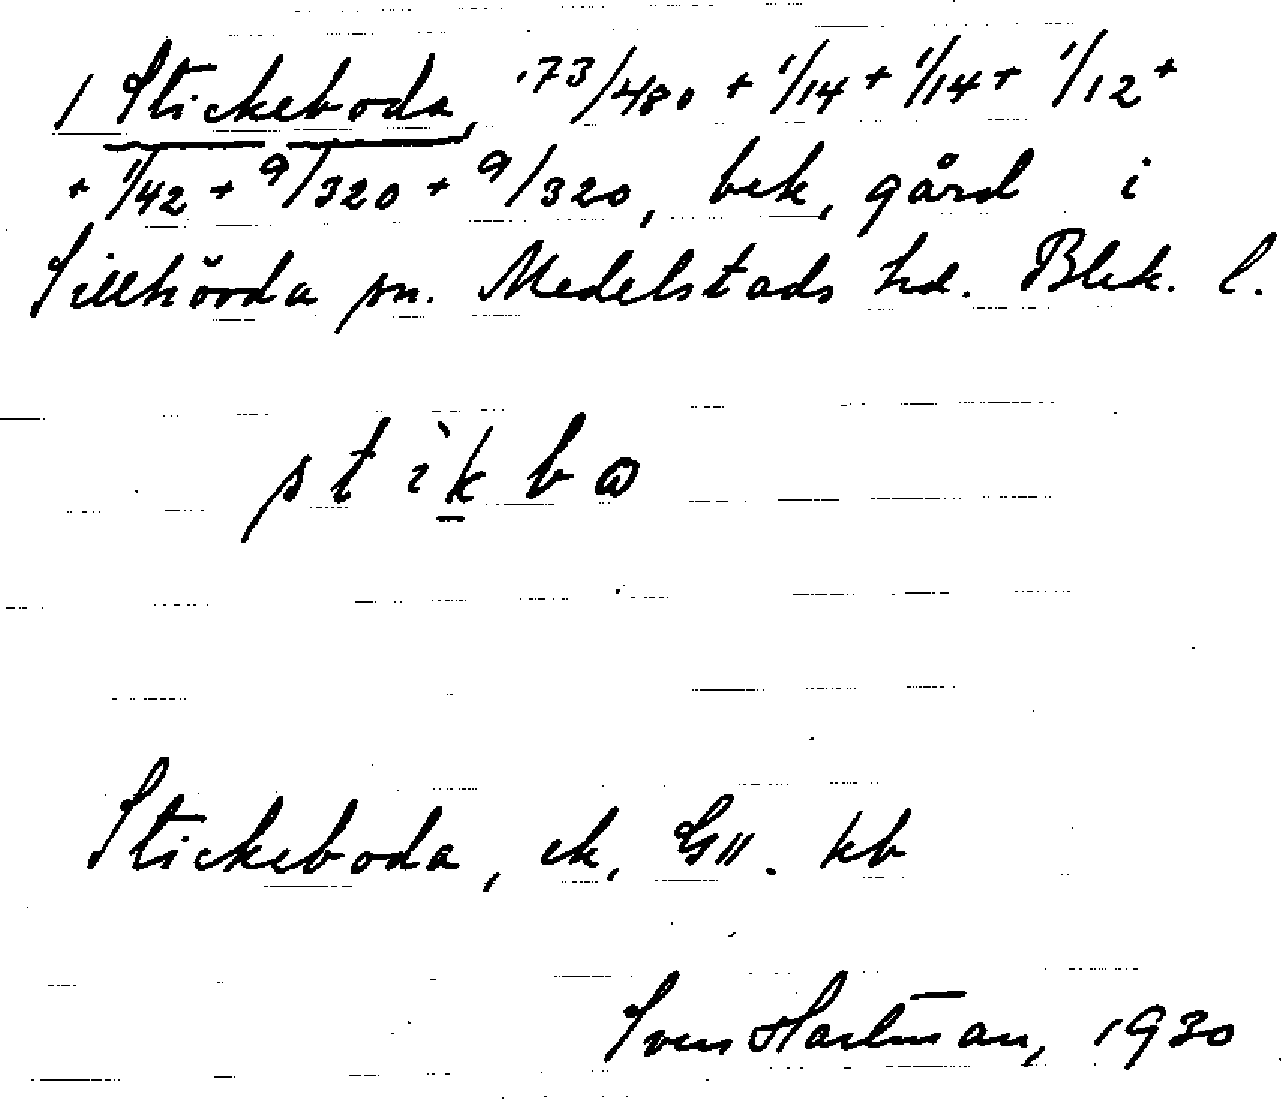 1 Stickeboda, 73/480 + 1/14 + 1/14 + 1/12 +
+ 1/42 + 9/320 + 9/320, bek, gård i
Sillhövda sn. Medelstads hd. Blek. l.
stìkba
Stickeboda, ek, GII. kb
Sven Hartman, 1930